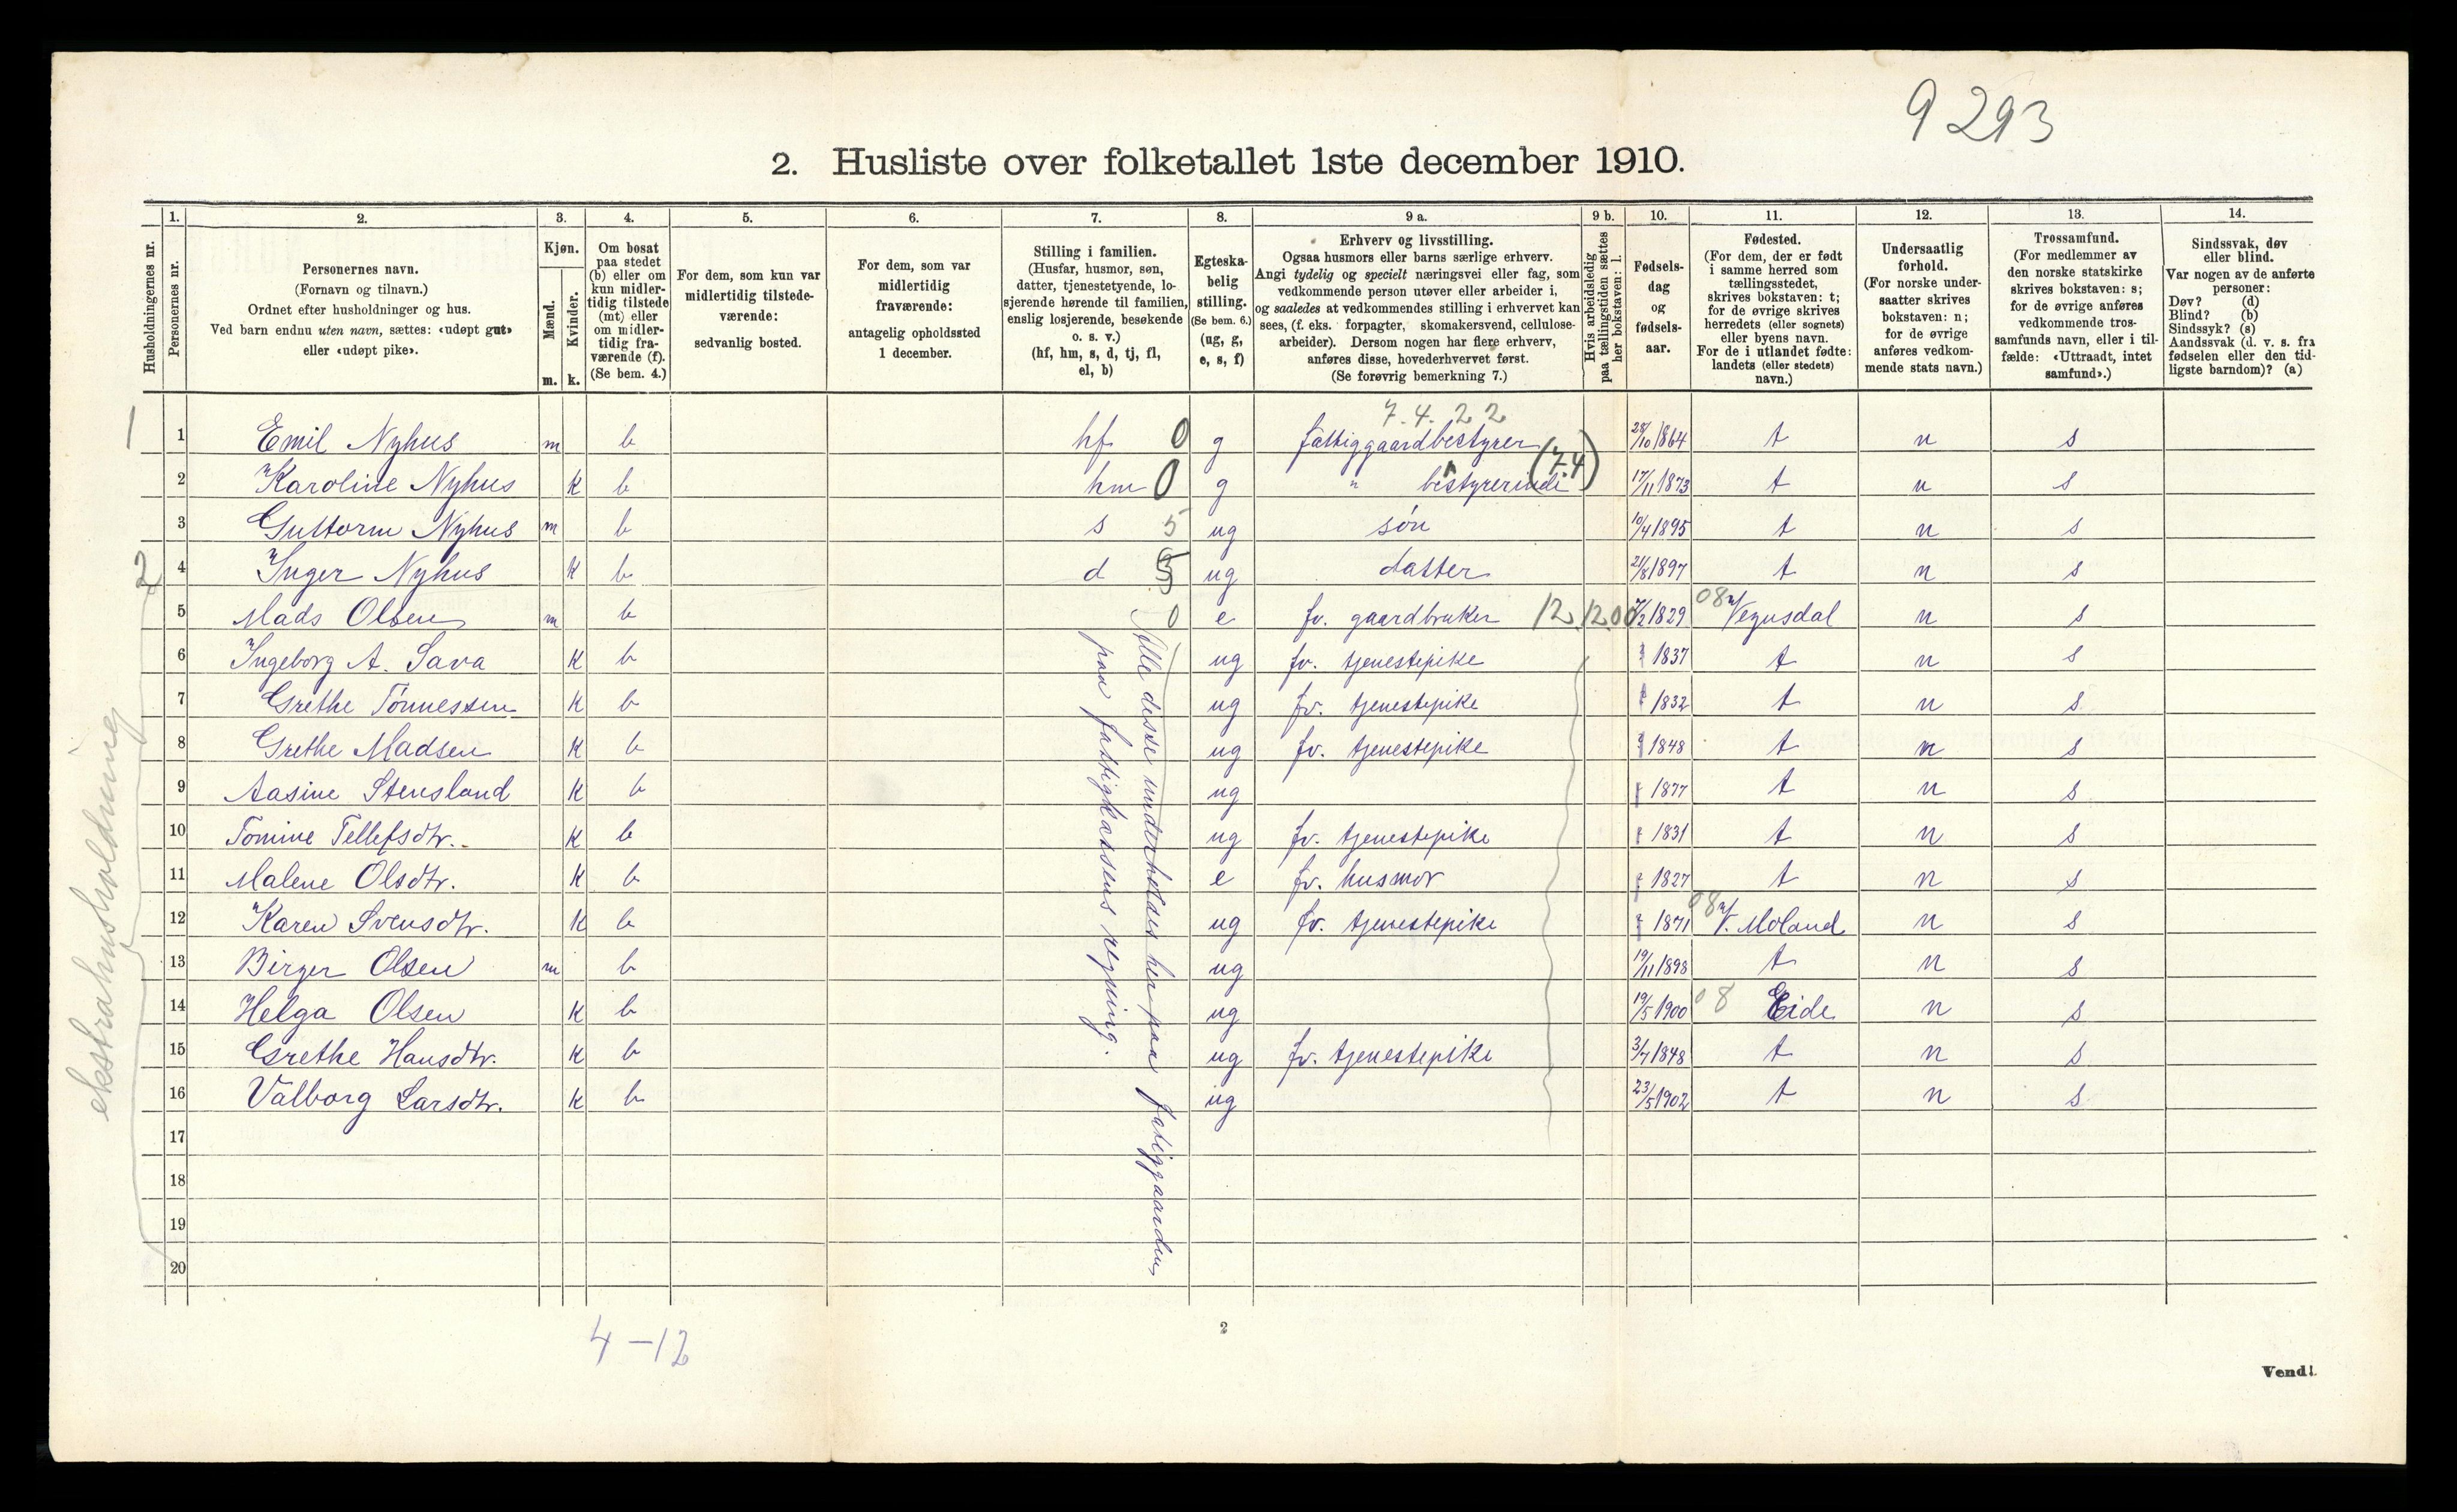 9293
2. Husliste over folketallet 1ste december 1910.
Husholdningernes nr.
1. Personernes nr.
2. Personernes navn.
(Fornavn og tilnavn.)
Ordnet efter husholdninger og hus.
Ved barn endnu uten navn, sættes: «udøpt gut»
eller «udøpt pike».
3. Kjøn.
Mænd. m.
Kvinder. k.
4. Om bosat
paa stedet
(b) eller om
kun midler-
tidig tilstede
(mt) eller
om midler-
tidig fra-
værende (f).
(Se bem. 4.)
5. For dem, som kun var
midlertidig tilstede-
værende:
sedvanlig bosted.
6. For dem, som var
midlertidig
fraværende:
antagelig opholdssted
1 december.
7. Stilling i familien.
(Husfar, husmor, søn,
datter, tjenestetyende, lo-
sjerende hørende til familien,
enslig losjerende, besøkende
o. s. v.)
(hf, hm, s, d, tj, fl,
el, b)
8. Egteska-
belig
stilling.
(Se bem. 6.)
(ug, g,
e, s, f)
9 a. Erhverv og livsstilling.
Ogsaa husmors eller barns særlige erhverv.
Angi tydelig og specielt næringsvei eller fag, som
vedkommende person utøver eller arbeider i,
og saaledes at vedkommendes stilling i erhvervet kan
sees, (f. eks. forpagter, skomakersvend, cellulose-
arbeider). Dersom nogen har flere erhverv,
anføres disse, hovederhvervet først.
(Se forøvrig bemerkning 7.)
9 b. Hvis arbeidsledig
paa tællingstiden sættes
her bokstaven: l.
10. Fødsels-
dag
og
fødsels-
aar.
11. Fødested.
(For dem, der er født
i samme herred som
tællingsstedet,
skrives bokstaven: t;
for de øvrige skrives
herredets (eller sognets)
eller byens navn.
For de i utlandet fødte:
landets (eller stedets)
navn.)
12. Undersaatlig
forhold.
(For norske under-
saatter skrives
bokstaven: n;
for de øvrige
anføres vedkom-
mende stats navn.)
13. Trossamfund.
(For medlemmer av
den norske statskirke
skrives bokstaven: s;
for de øvrige anføres
vedkommende tros-
samfunds navn, eller i til-
fælde: «Uttraadt, intet
samfund».)
14. Sindssvak, døv
eller blind.
Var nogen av de anførte
personer:
Døv? (d)
Blind? (b)
Sindssyk? (s)
Aandssvak (d. v. s. fra
fødselen eller den tid-
ligste barndom)? (a)
7.4.22
1 Emil Nyhus m b hf 0 g fattiggaardbestyrer 28/10 1864 t n s
2 Karoline Nyhus k b hm 0 g " bestyrerinde (7.4) 17/11 1873 t n s
3 Guttorm Nyhus m b s 5 ug søn 10/4 1895 t n s
2
4 Inger Nyhus k b d 5 ug datter 21/8 1897 t n s
5 Mads Olsen m b 0 e fv. gaardbruker 12.12.00 7/2 1829 08 Vegusdal n s
6 Ingeborg A. Sava k b ug fv. tjenestepike 1837 t n s
7 Grethe Tønnessen k b ug fv. tjenestepike 1832 t n s
8 Grethe Madsen k b ug fv. tjenestepike 1848 t n s
9 Aasine Stensland k b ug 1877 t n s
10 Tomine Tellefsdtr. k b ug fv. tjenestepike 1831 t n s
11 Malene Olsdtr. k b e fv. husmor 1827 t n s
12 Karen Svensdtr. k b ug fv. tjenestepike 1871 08 V. Moland n s
13 Birger Olsen m b ug 19/11 1898 t n s
14 Helga Olsen k b ug 19/5 1900 08 Eide n s
15 Grethe Hansdtr. k b ug fv. tjenestepike 3/7 1848 t n s
16 Valborg Larsdtr. k b ug 23/5 1902 t n s
17
18
19
20
Alle disse underholdes her paa fatiggaarden
paa fattigkassens regning.
ekstrahusholdning
4-12
2
Vend!